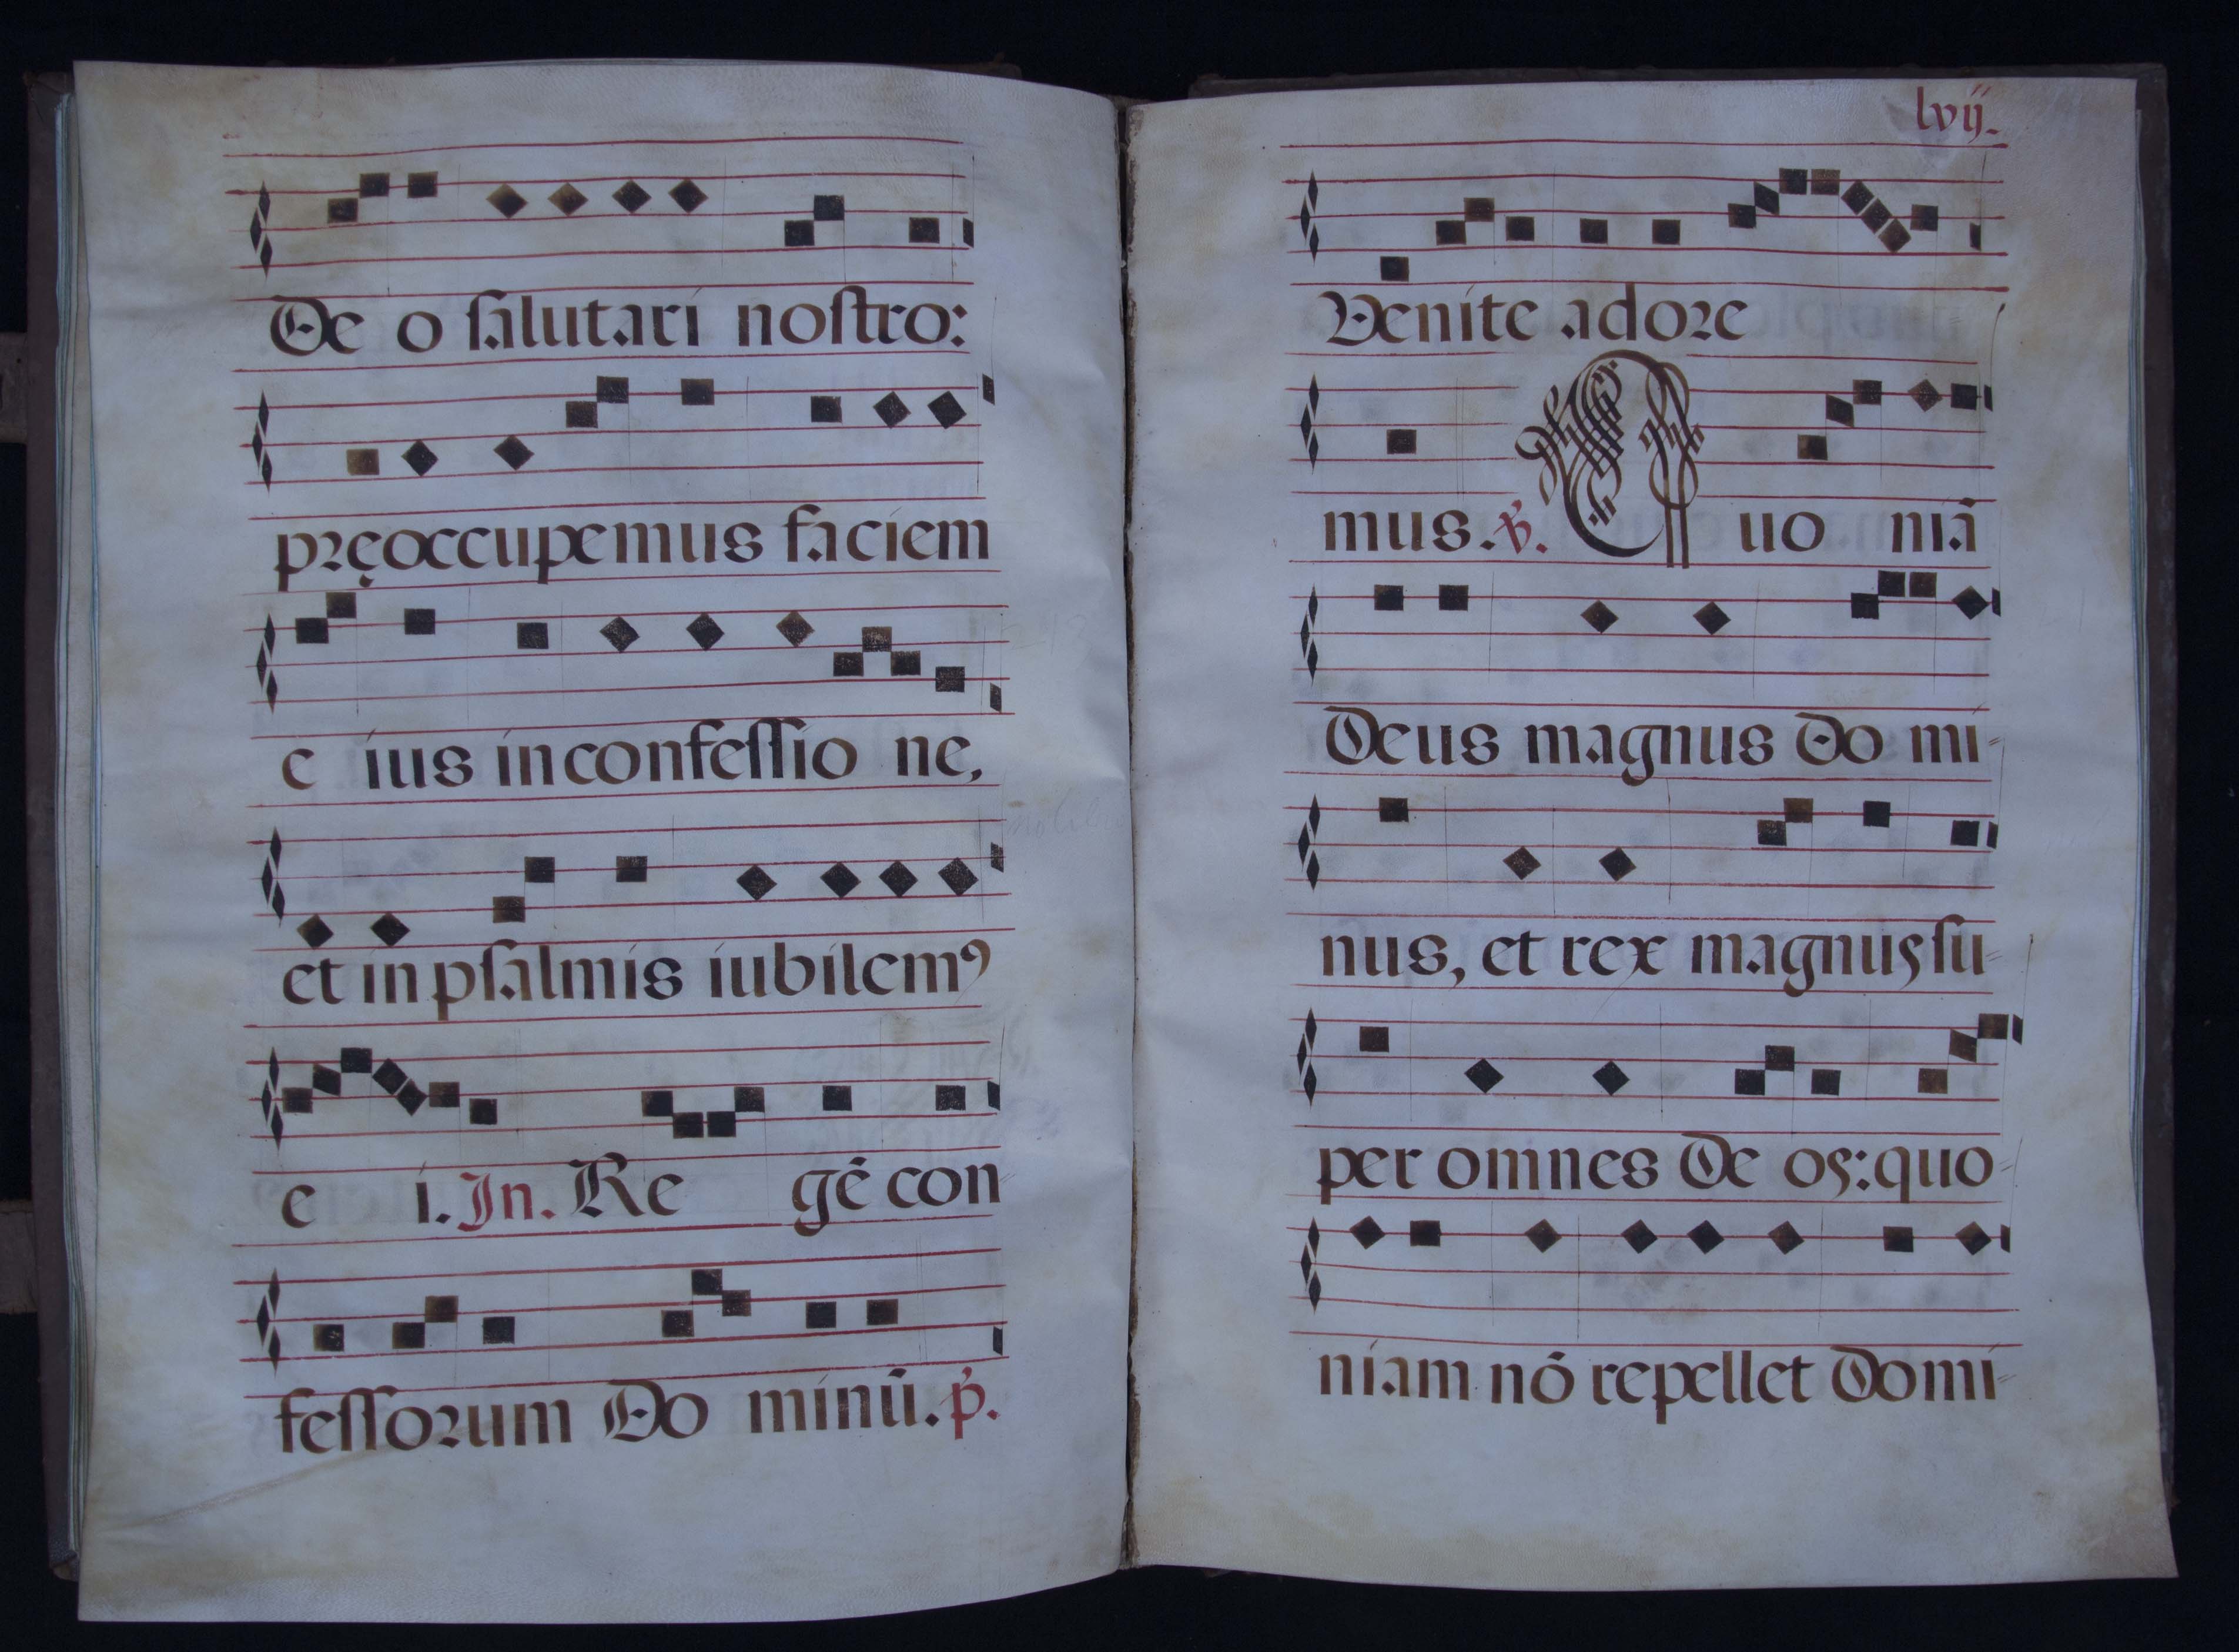 De o ſalutari noſtro:
pręoccupemus faciem
e ius in confeſſio ne,
et in pſalmis iubilemꝰ
e i. In. Re gē con
feſſoꝛum Do minū. p̄.
lvij.
Venite adoꝛe
mus. ℣. Quo niā
Deus magnus Do mi-
nus, et rex magnus ſu-
per omnes De os: quo-
niam nō repellet Domi-